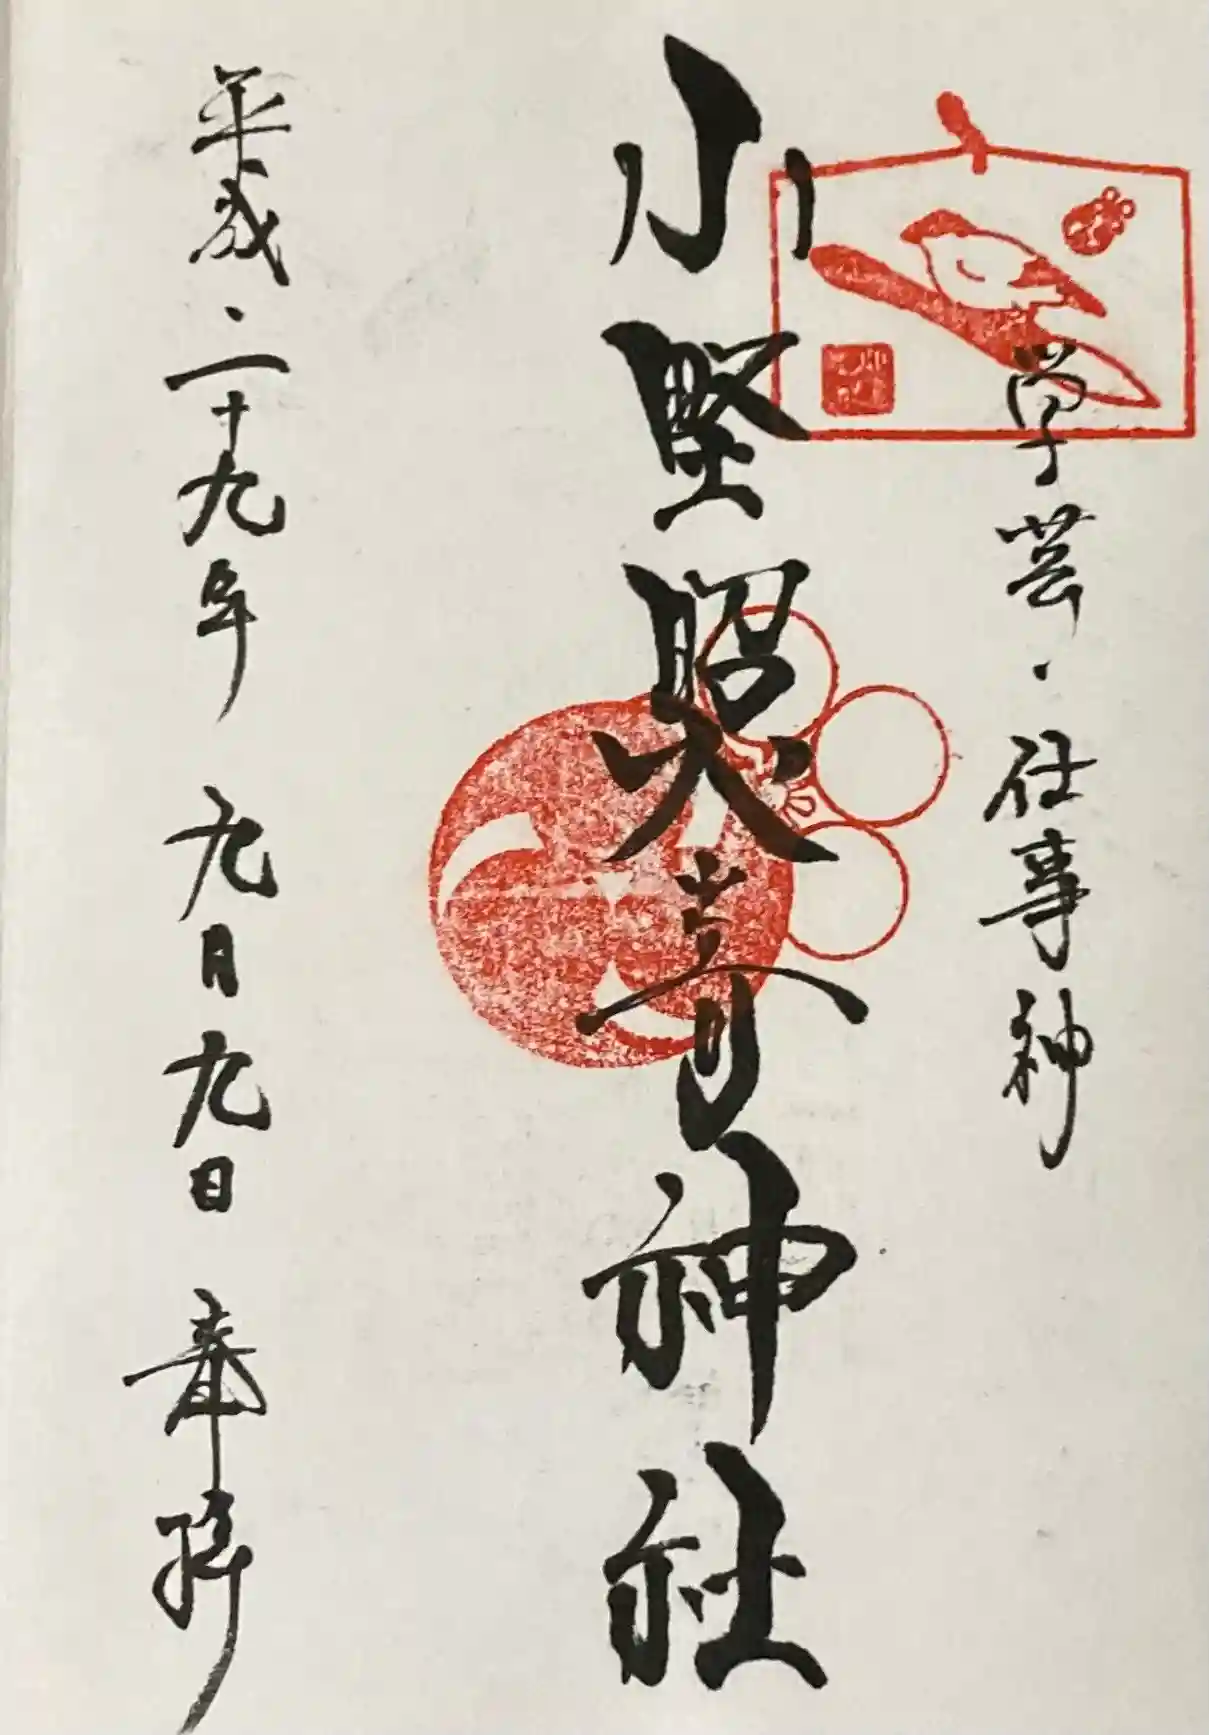 学芸・仕事神
小野照嵜神社
平成・二十九年 九月九日 奉拝